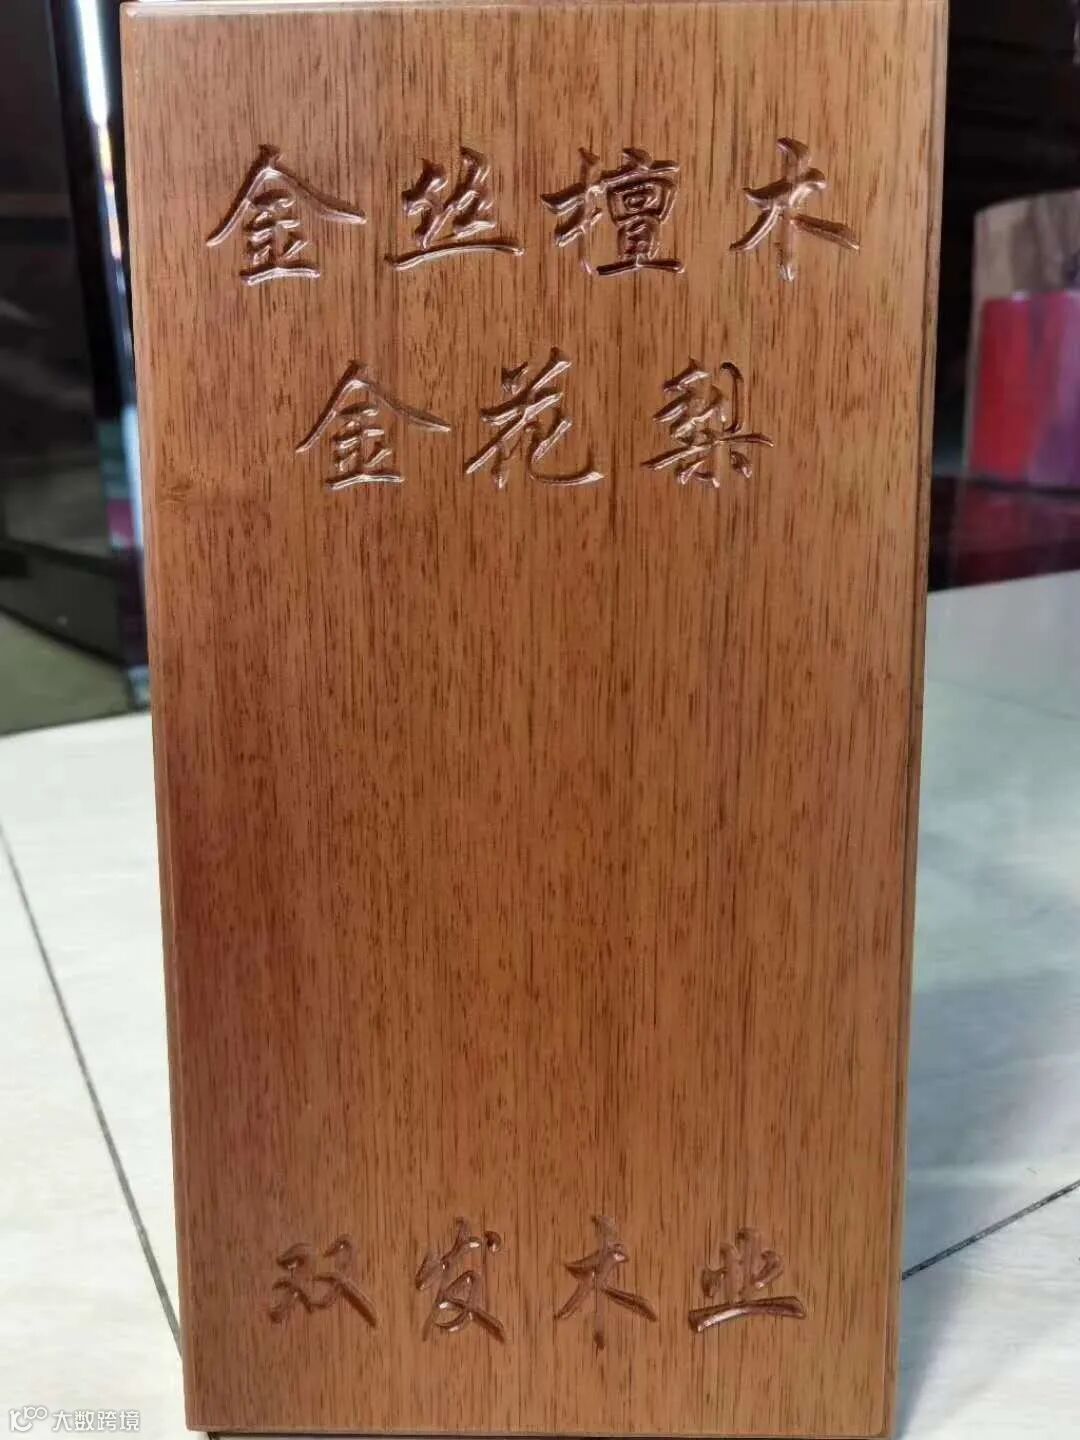 金丝檀木
金花梨
双发木业
大数跨境